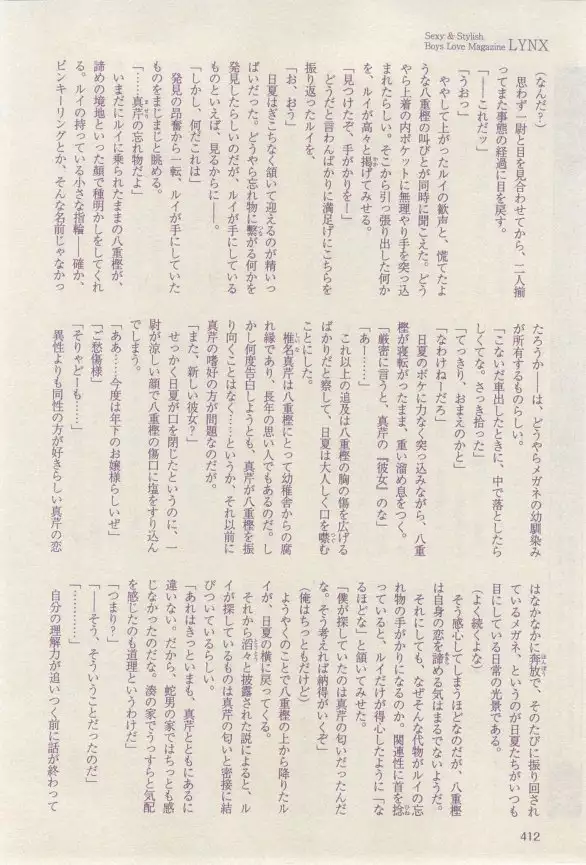 Sexy & Stylish
Boys Love Magazine LYNX
(なんだ?)
思わず一尉と目を見合わせてから、二人揃
ってまた事態の経過に目を戻す。
「――これだッ」
「うおっ」
ややして上がったルイの歓声と、慌てたよ
うな八重樫の叫びとが同時に聞こえた。どう
やら上着の内ポケットに無理やり手を突っ込
まれたらしい。そこから引っ張り出した何か
を、ルイが高々と掲げてみせる。
「見つけたぞ、手がかりを――」
どうだと言わんばかりに満足げにこちらを
振り返ったルイを、
「お、おう」
日夏はぎこちなく頷いて迎えるのが精いっ
ぱいだった。どうやら忘れ物に繋がる何かを
発見したらしいのだが、ルイが手にしている
ものといえば、見るからに――。
「しかし、何だこれは」
発見の昂奮から一転、ルイが手にしていた
ものをまじまじと眺める。
「……真芹の忘れ物だよ」
いまだにルイに乗られたままの八重樫が、
諦めの境地といった顔で種明かしをしてくれ
る。ルイの持っている小さな指輪――確か、
ピンキーリングとか、そんな名前じゃなかっ
たろうか――は、どうやらメガネの幼馴染み
が所有するものらしい。
「こないだ車出したときに、中で落としたら
しくてな。さっき拾った」
「てっきり、おまえのかと」
「なわけねーだろ」
日夏のボケに力なく突っ込みながら、八重
樫が寝転がったまま、重い溜め息をつく。
「厳密に言うと、真芹の『彼女』のな」
「あー……」
これ以上の追及は八重樫の胸の傷を広げる
ばかりだと察して、日夏は大人しく口を噤む
ことにした。
椎名真芹は八重樫にとって幼稚舎からの腐
れ縁であり、長年の思い人でもあるのだ。し
かし何度告白しようとも、真芹が八重樫を振
り向くことはなく……というか、それ以前に
真芹の嗜好の方が問題なのだが。
「また、新しい彼女?」
せっかく日夏が口を閉じたというのに、一
尉が涼しい顔で八重樫の傷口に塩をすり込ん
でしまう。
「ああ……今度は年下のお嬢様らしいぜ」
「ご愁傷様」
「そりゃどーも……」
異性よりも同性の方が好きらしい真芹の恋
はなかなかに奔放で、そのたびに振り回され
ているメガネ、というのが日夏たちがいつも
目にしている日常の光景である。
(よく続くよな)
そう感心してしまうほどなのだが、八重樫
は自身の恋を諦める気はまるでないようだ。
それにしても、なぜそんな代物がルイの忘
れ物の手がかりになるのか。関連性に首を捻
っていると、ルイだけが得心したように「な
るほどな」と頷いてみせた。
「僕が探していたのは真芹の匂いだったんだ
な。そう考えれば納得がいくぞ」
(俺はちっともだけど)
ようやくのことで八重樫の上から降りたル
イが、日夏の横に戻ってくる。
それから滔々と披露された説によると、ル
イが探しているものは真芹の匂いと密接に結
びついているらしい。
「あれはきっといまも、真芹とともにあるに
違いない。だから、蛇男の家ではちっとも感
じなかったのだな。湊の家でうっすらと気配
を感じたのも道理というわけだ」
「つまり?」
「――そう、そういうことだったのだ」
「…………」
自分の理解力が追いつく前に話が終わって
412